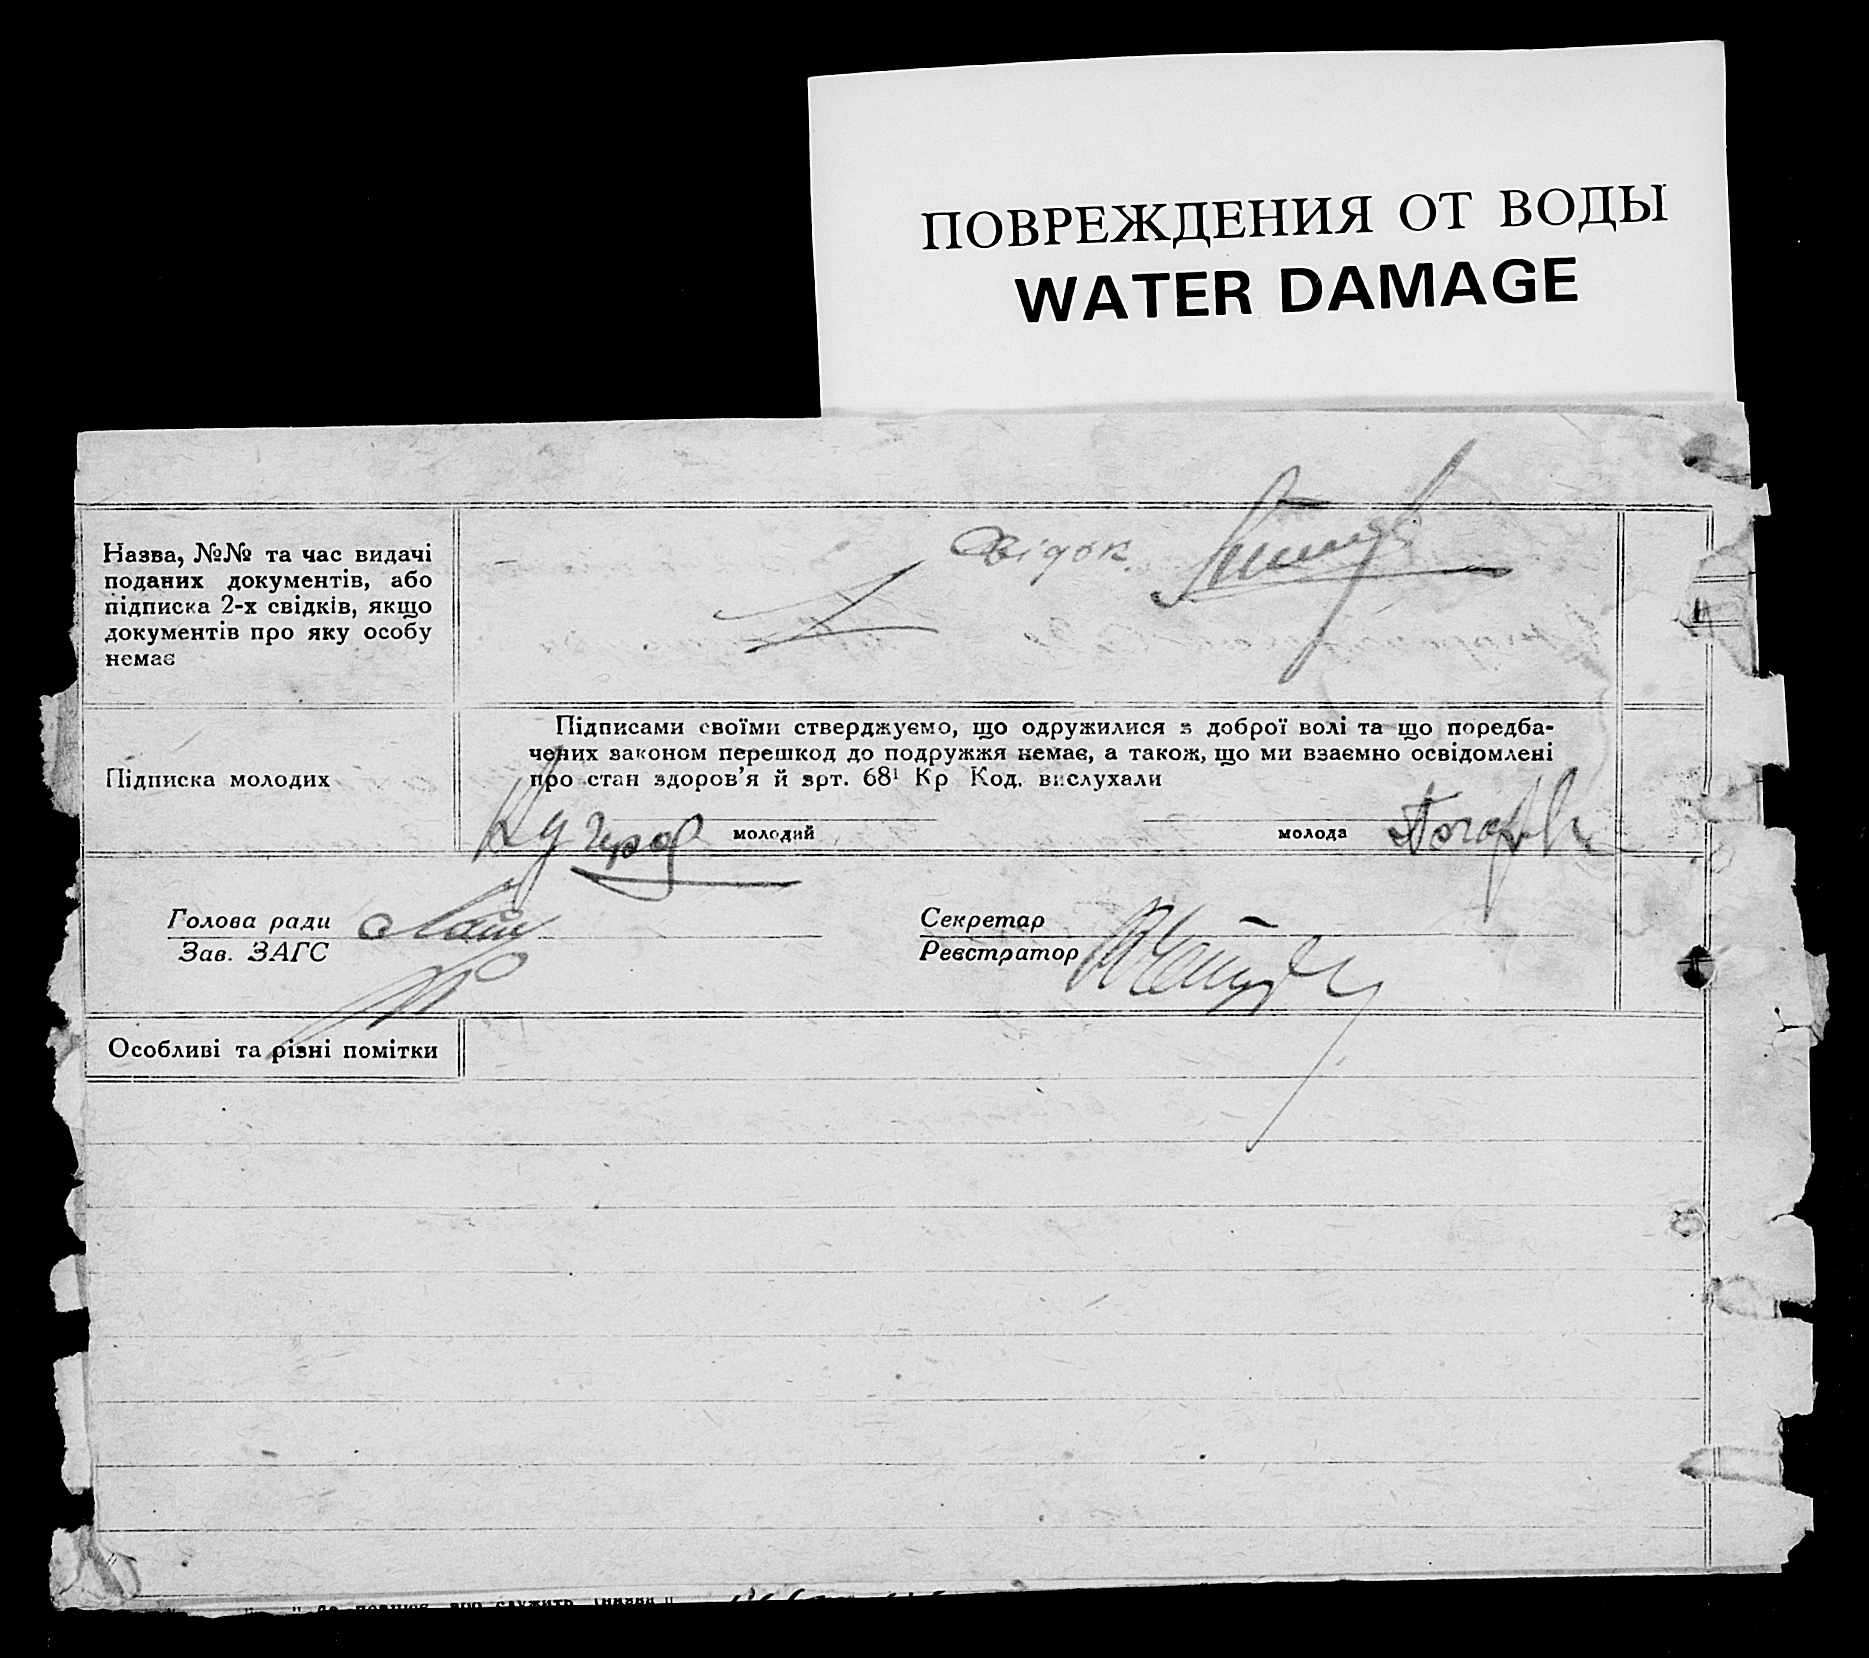 ПОВРЕЖДЕНИЯ ОТ ВОДЫ
WATER DAMAGE
Назва, №№ та час видачі
поданих документів, або
підписка 2-х свідків, якщо
документів про яку особу
немає
Свідок.
Підписами своїми стверджуємо, що одружилися з доброї волі та що поредба-
чених законом перешкод до подружжя немає, а також, що ми взаємно освідомлені
про стан здоров'я й арт. 68¹ Кр Код. вислухали
Підписка молодих
молодий
молода
Голова ради
Секретар
Зав. ЗАГС
Реєстратор
Особливі та різні помітки